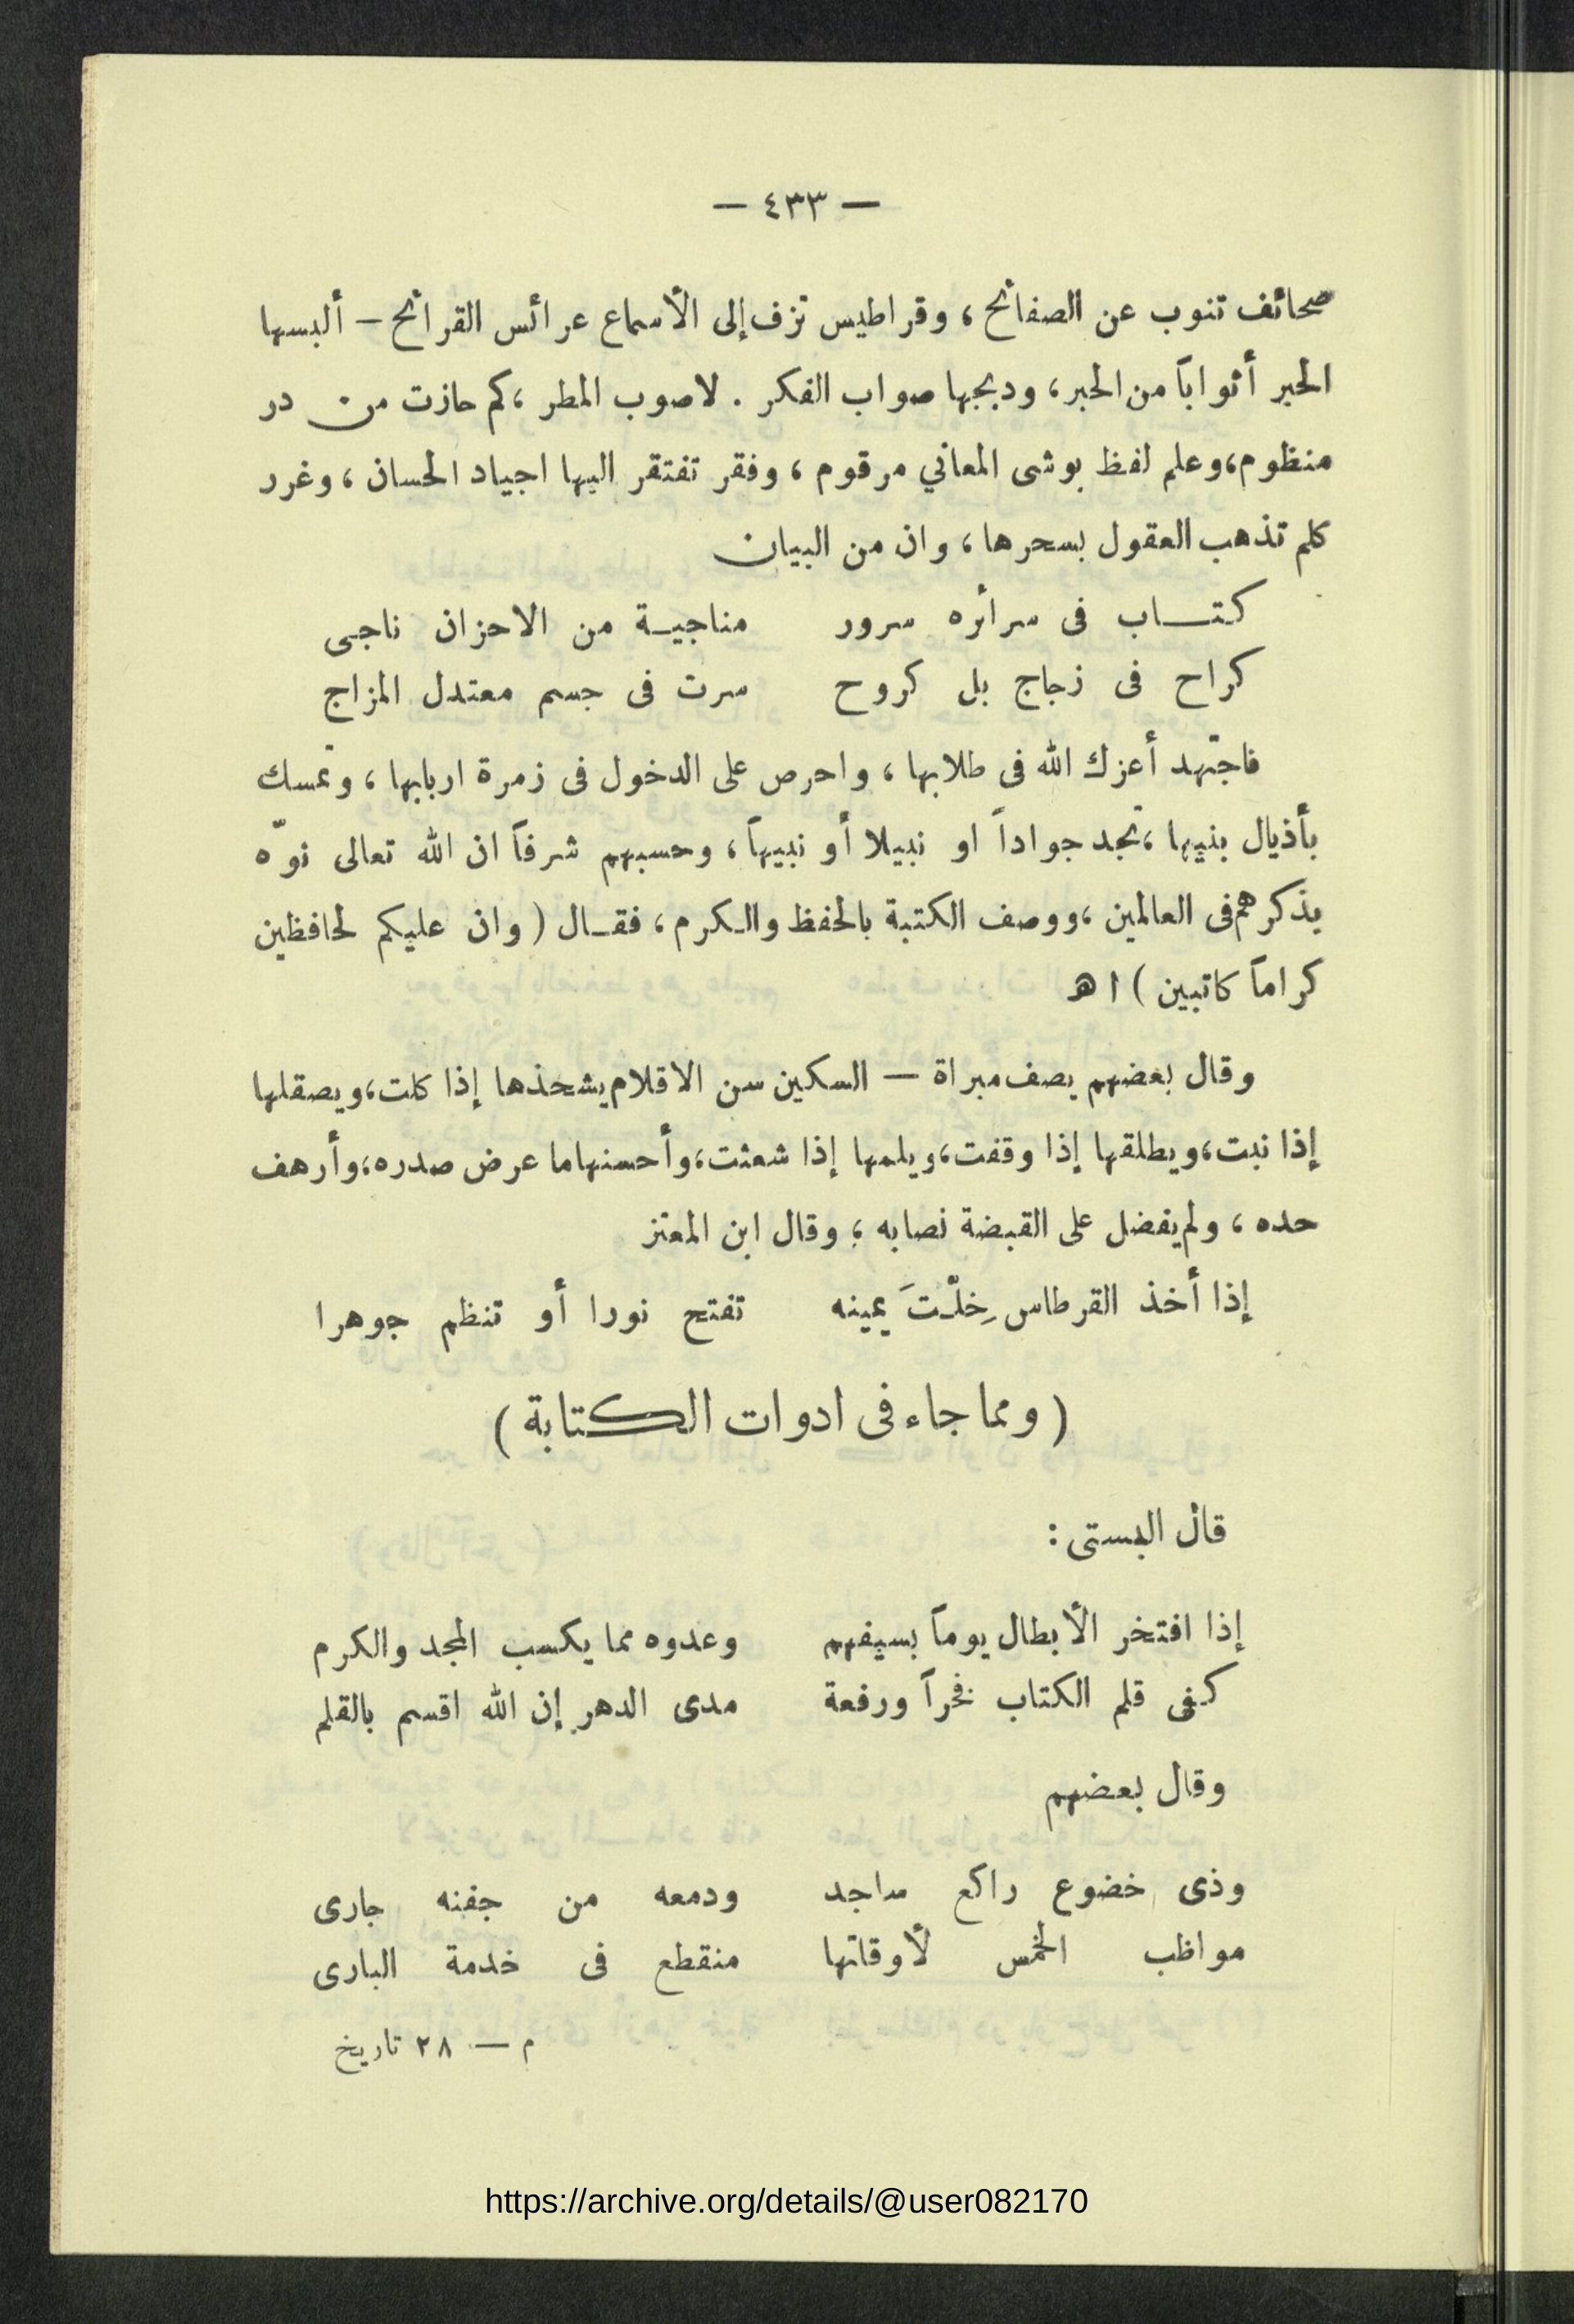 — ٤٣٣ —
صحائف تنوب عن الصفائح ، وقراطيس تزف إلى الأسماع عرائس القرائح — ألبسها
الحبر أثواباً من الحبر ، ودبجها صواب الفكر . لا صوب المطر ، كم حازت من در
منظوم ، وعلم لفظ بوشى المعاني مرقوم ، وفقر تفتقر اليها اجياد الحسان ، وغرر
كلم تذهب العقول بسحرها ، وان من البيان
كتاب فى سرائره سرور مناجيـة من الاحزان ناجى
كراح فى زجاج بل كروح سرت فى جسم معتدل المزاج
فاجتهد أعزك الله فى طلابها ، واحرص على الدخول فى زمرة اربابها ، وتمسك
بأذيال بنيها ، تجد جواداً او نبيلا أو نبيهاً ، وحسبهم شرفاً ان الله تعالى نوّه
بذكرهم فى العالمين ، ووصف الكتبة بالحفظ والكرم ، فقـال ( وان عليكم لحافظين
كراماً كاتبين ) ا هـ
وقال بعضهم يصف مبراة — السكين سن الاقلام يشحذها إذا كلت ، ويصقلها
إذا نبت ، ويطلقها إذا وقفت ، ويلمها إذا شعثت ، وأحسنها ما عرض صدره ، وأرهف
حده ، ولم يفضل على القبضة نصابه ؛ وقال ابن المعتز
إذا أخذ القرطاس خِلْتَ يمينه تفتح نورا أو تنظم جوهرا
( ومما جاء فى ادوات الكتابة )
قال البستى :
إذا افتخر الأبطال يوماً بسيفهم وعدوه مما يكسب المجد والكرم
كفى قلم الكتاب فخراً ورفعة مدى الدهر إن الله اقسم بالقلم
وقال بعضهم
وذى خضوع راكع ساجد ودمعه من جفنه جارى
مواظب الخمس لأوقاتها منقطع فى خدمة البارى
م — ٢٨ تاريخ
https://archive.org/details/@user082170